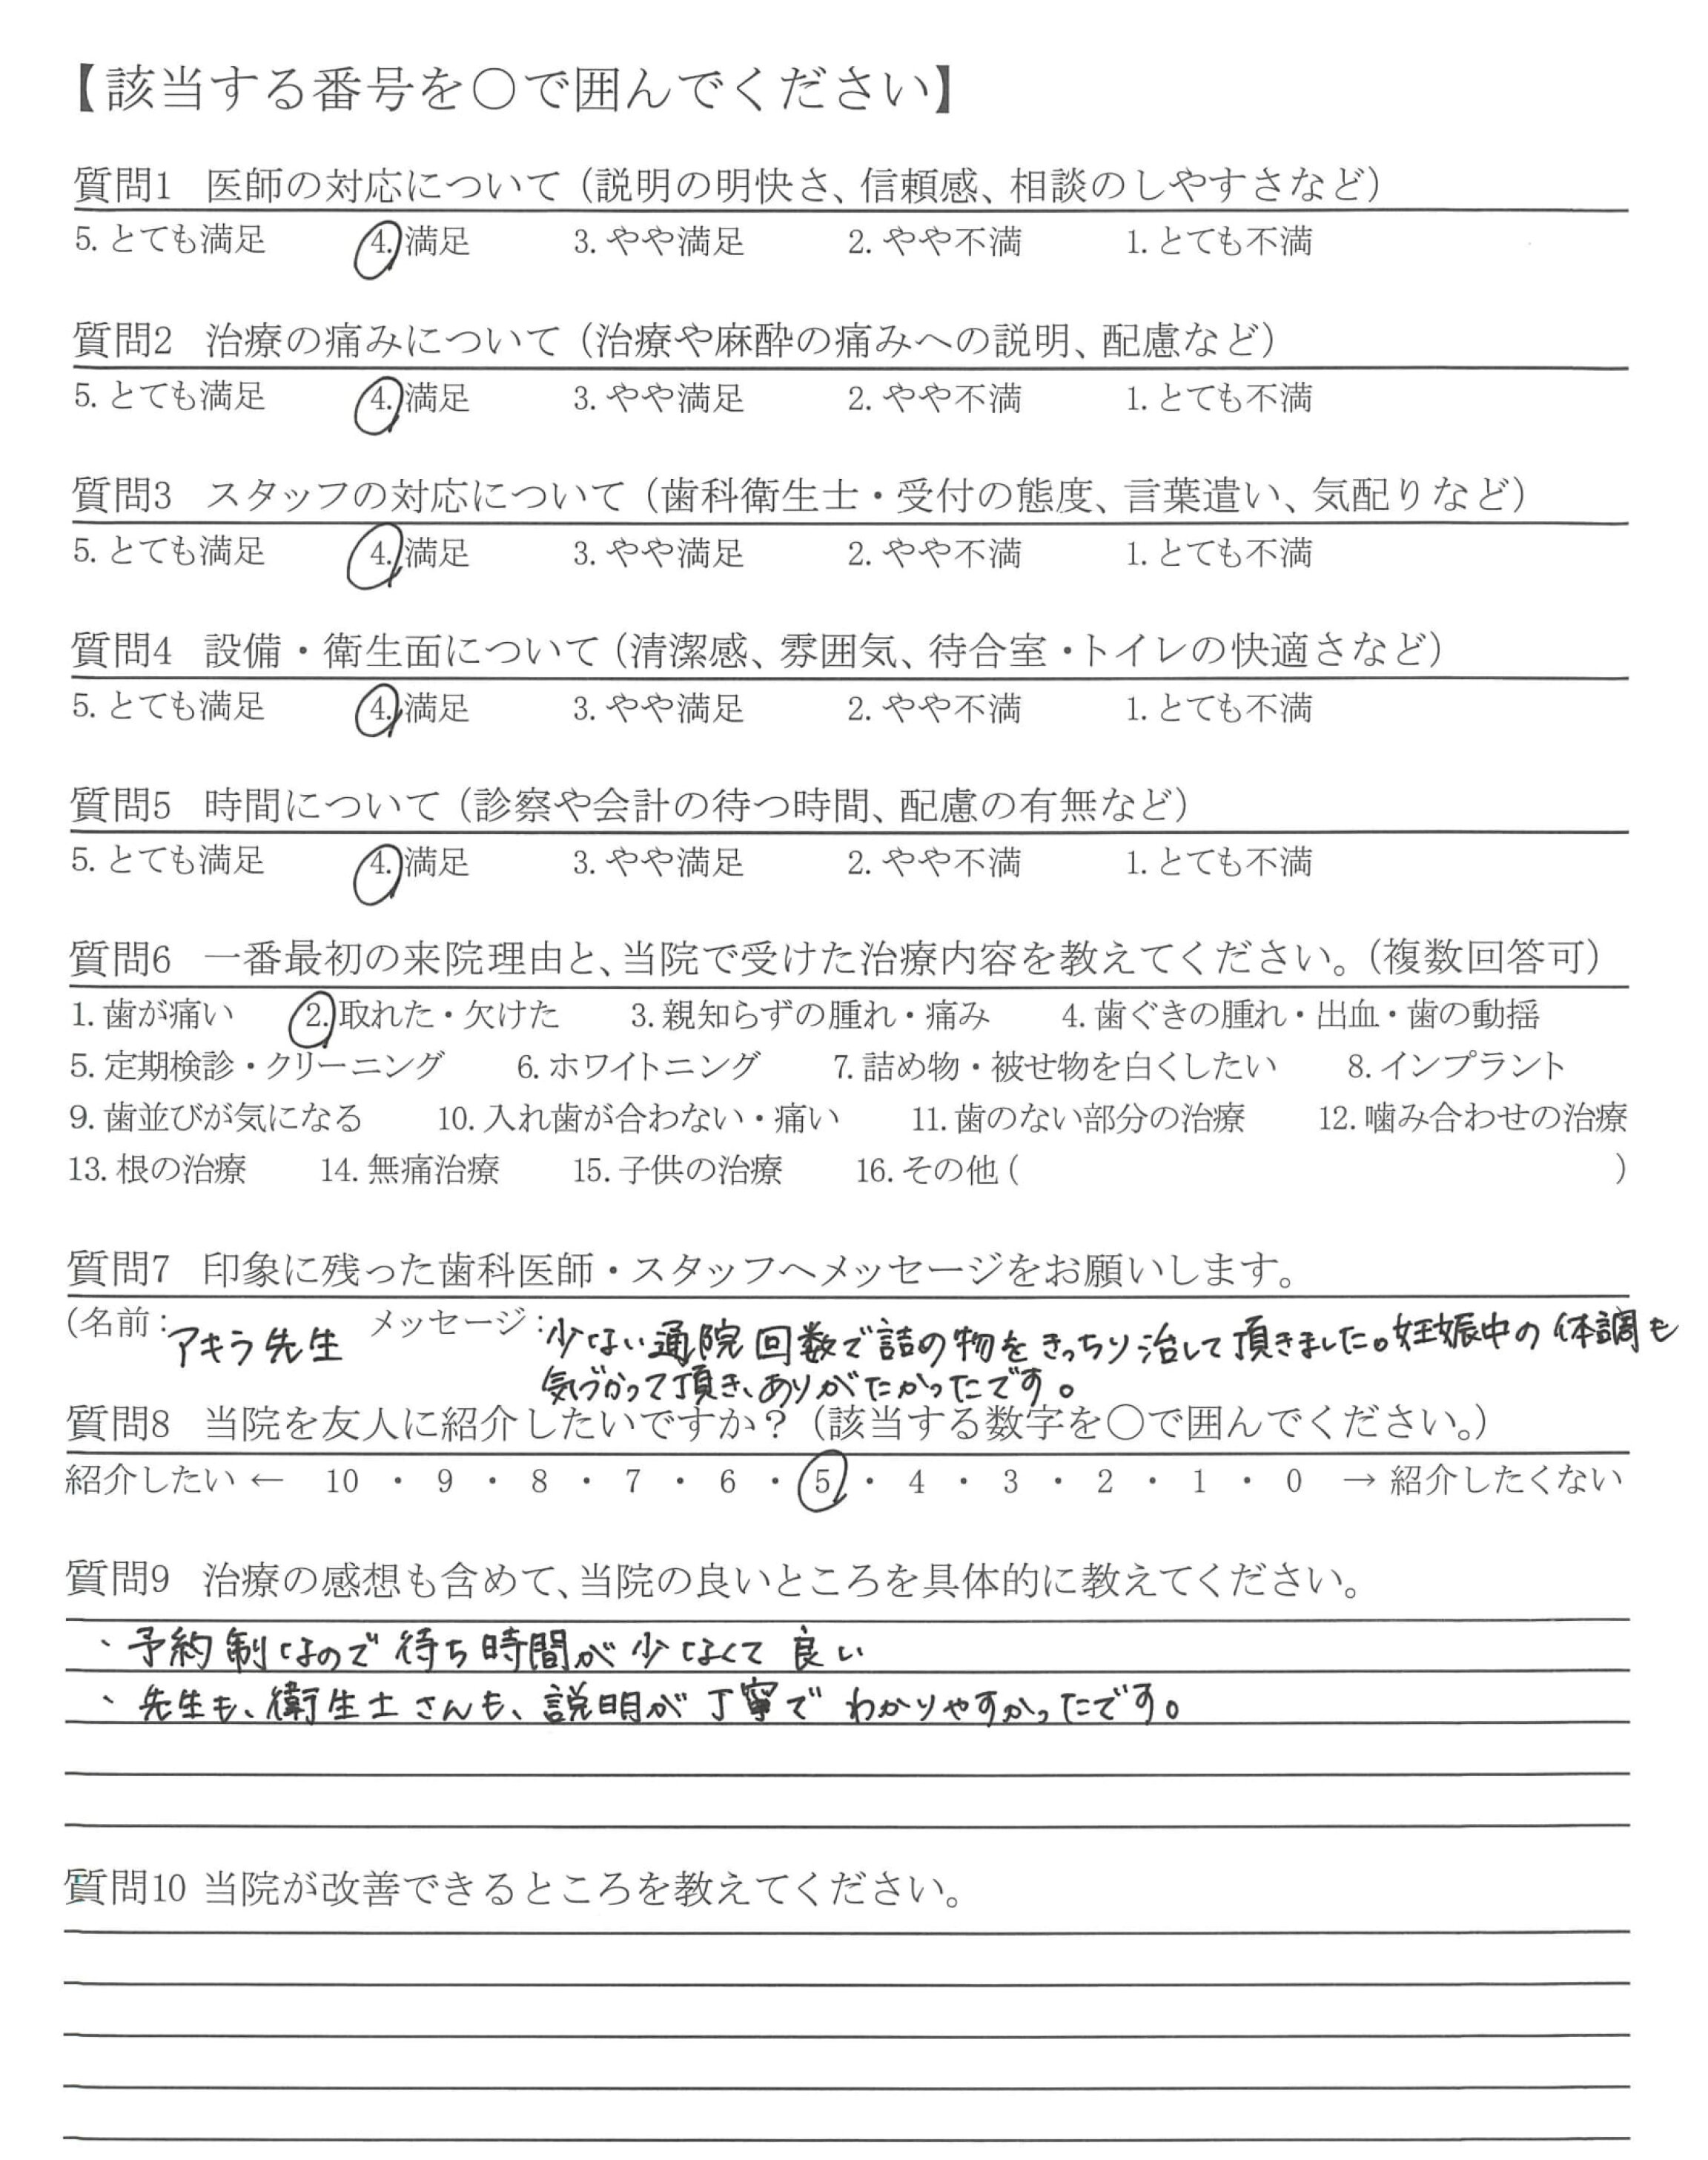 【該当する番号を○で囲んでください】
質問1 医師の対応について（説明の明快さ、信頼感、相談のしやすさなど）
5. とても満足 4. 満足 3. やや満足 2. やや不満 1. とても不満
質問2 治療の痛みについて（治療や麻酔の痛みへの説明、配慮など）
5. とても満足 4. 満足 3. やや満足 2. やや不満 1. とても不満
質問3 スタッフの対応について（歯科衛生士・受付の態度、言葉遣い、気配りなど）
5. とても満足 4. 満足 3. やや満足 2. やや不満 1. とても不満
質問4 設備・衛生面について（清潔感、雰囲気、待合室・トイレの快適さなど）
5. とても満足 4. 満足 3. やや満足 2. やや不満 1. とても不満
質問5 時間について（診察や会計の待つ時間、配慮の有無など）
5. とても満足 4. 満足 3. やや満足 2. やや不満 1. とても不満
質問6 一番最初の来院理由と、当院で受けた治療内容を教えてください。（複数回答可）
1. 歯が痛い 2. 取れた・欠けた 3. 親知らずの腫れ・痛み 4. 歯ぐきの腫れ・出血・歯の動揺
5. 定期検診・クリーニング 6. ホワイトニング 7. 詰め物・被せ物を白くしたい 8. インプラント
9. 歯並びが気になる 10. 入れ歯が合わない・痛い 11. 歯のない部分の治療 12. 噛み合わせの治療
13. 根の治療 14. 無痛治療 15. 子供の治療 16. その他（ ）
質問7 印象に残った歯科医師・スタッフへメッセージをお願いします。
（名前：アキラ先生 メッセージ：少ない通院回数で詰め物をきっちり治して頂きました。妊娠中の体調も
気づかって頂き、ありがたかったです。
質問8 当院を友人に紹介したいですか？（該当する数字を○で囲んでください。）
紹介したい ← 10 ・ 9 ・ 8 ・ 7 ・ 6 ・ 5 ・ 4 ・ 3 ・ 2 ・ 1 ・ 0 → 紹介したくない
質問9 治療の感想も含めて、当院の良いところを具体的に教えてください。
・予約制なので待ち時間が少なくて良い
・先生も、衛生士さんも、説明が丁寧でわかりやすかったです。
質問10 当院が改善できるところを教えてください。